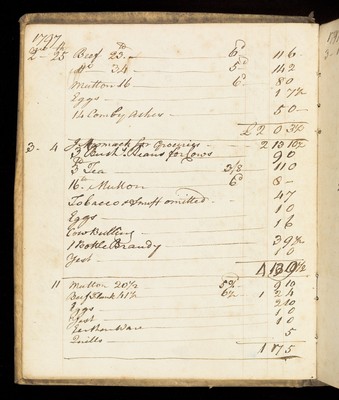 1797
2 - 25 Beef 23 - 6d 11 6 -
Do 34 - 5d 14 2
Mutton 16 - 6d 8 0
Eggs - 1 7½
14 Comby Ashes - 5 0 -
£2 0 3½
3 - 4 J for groceries - 2 13 10½
3 Bush Beans for Cows 9 0
3 Tea 3/8 11 0
16 Mutton 6d 8 -
Tobacco & Snuff omitted - 4 7
Eggs - 1 0
Cow Bulling - 1 6
1 Bottle Brandy 3 9½
Yest - 1 0
11 Mutton 20½ 9 10
Beef 41½ 6½ 1 2 4
Eggs - 2 10
Yest - 1 0
Earthen Ware 1 0
Quills - 5
1 17 5